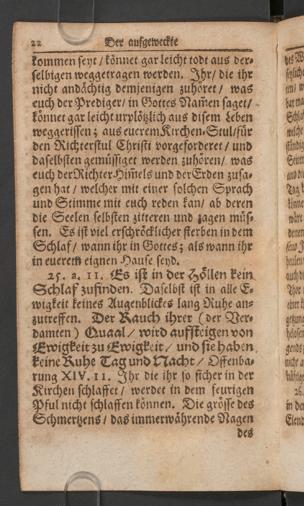 22 Der aufgeweckte
kommen seyt / könnet gar leicht todt aus der-
selbigen weggetragen werden. Ihr / die ihr
nicht andächtig demjenigen zuhöret / was
euch der Prediger / in Gottes Nam̃en saget /
könnet gar leicht urplötzlich aus disem Leben
weggerissen; aus euerem Kirchen-Stul / für
den Richterstul Christi vorgeforderet / und
daselbsten gemüssiget werden zuhören, was
euch der Richter Him̃els und der Erden zusa-
gen hat / welcher mit einer solchen Sprach
und Stimme mit euch reden kan / ab deren
die Seelen selbsten zitteren und zagen müs-
sen. Es ist viel erschröcklicher sterben in dem
Schlaf / wann ihr in Gottes; als wann ihr
in euerem eignen Hause seyd.
25. 2. 11. Es ist in der Höllen kein
Schlaf zufinden. Daselbst ist in alle E-
wigkeit keines Augenblickes lang Ruhe an-
zutreffen. Der Rauch ihrer (der Ver-
damten) Quaal / wird aufsteigen von
Ewigkeit zu Ewigkeit / und sie haben
keine Ruhe Tag und Nacht / Offenba-
rung XIV. 11. Ihr die ihr so sicher in der
Kirchen schlaffet / werdet in dem feurigen
Pful nicht schlaffen können. Die grösse des
Schmertzens / das immerwährende Nagen
des